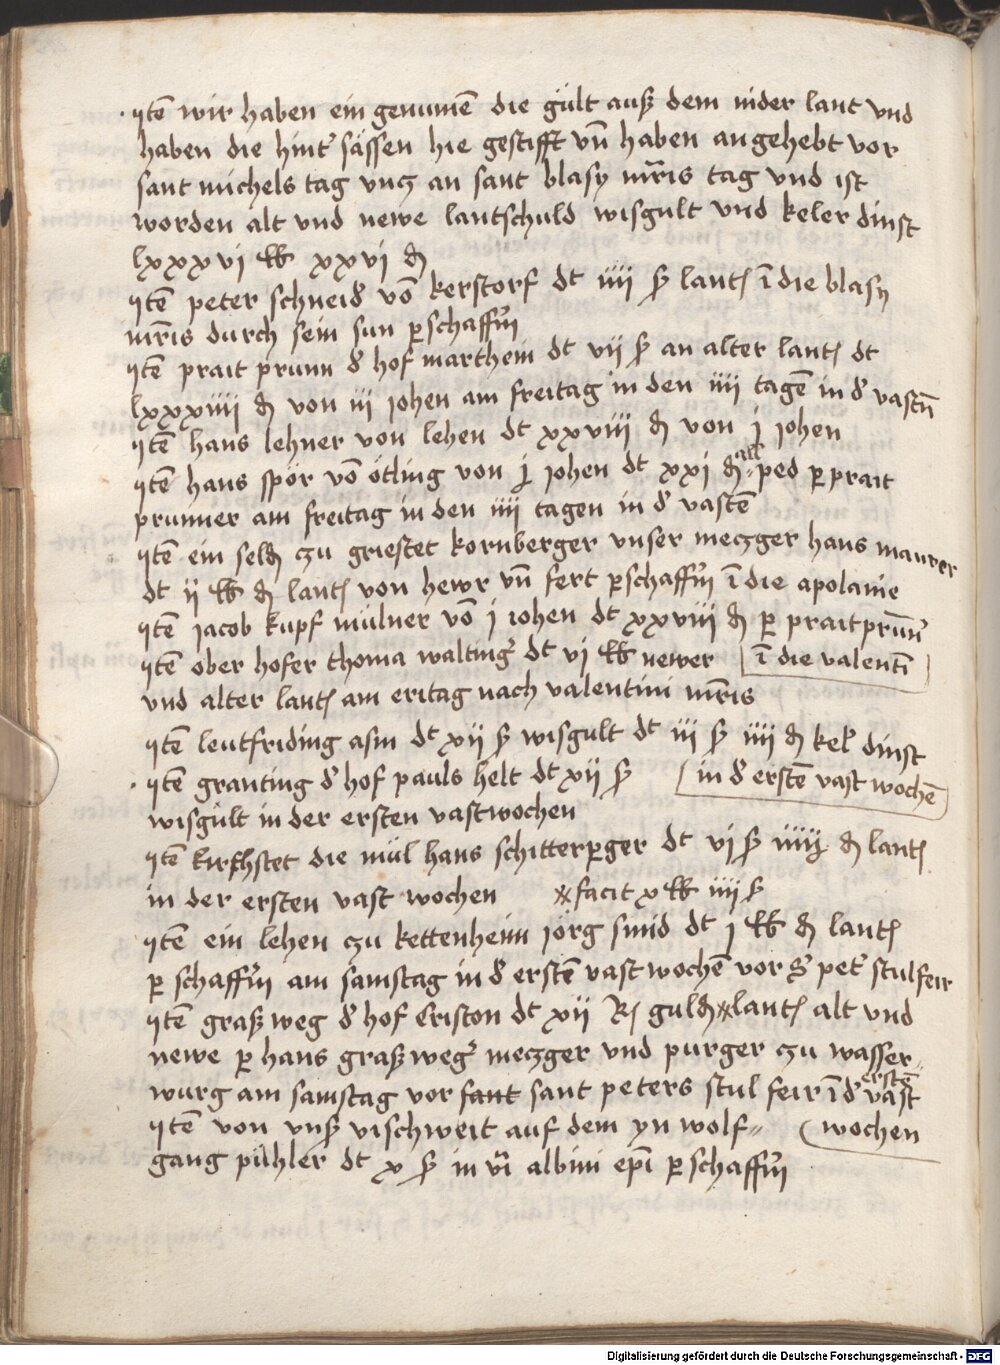 ·Jtē wir haben ein genumē die gült auß dem nider lant vnd
haben die hint͛ sässen hie gestifft vn̄ haben angehebt vor
sant michels tag vncz an sant blasy mr̄is tag vnd ist
worden alt vnd newe lantschuld wisgult vnd keler dinst
lxxxvi ℔ xxvi ₰
Jtē peter schneid͛ vō kerstorf dt iiii ß lantſ ī die blasy
mr̄is durch sein sun ꝑ schaffr̄m
Jtē prait prunn d͛ hof marthein dt vij ß an alter lantſ dt
lxxxiiii ₰ von iii johen am freitag in den iiii tagē in d͛ vastn̄
Jtē hans lehner von lehen dt xxviii ₰ von j johen
Jtē hans spör vō ötling von j johen dt xxi ₰ ꝑ prait
prunner am freitag in den iiii tagen in d͛ vastē
Jtē ein seld͛ zu griestet kornberger vnser meczger hans maurer
dt ij ℔ ₰ lantſ von hewr vn̄ fert ꝑ schaffr̄m ī die apolanie
Jtē jacob kupf mülner vō j johen dt xxviii ₰ ꝑ praitprūn͛
Jtē ober hofer thoma walting͛ dt vi ℔ newer
ī die valentī
vnd alter lantſ am eritag nach valentini mr̄is
Jtē leutfriding asm dt xii ß wisgult dt iii ß iiii ₰ kel͛ dinst
·Jtē granting d͛ hof pauls helt dt xii ß
in d͛ erstē vast wochē
wisgült in der ersten vastwochen
Jtē kirchstet die mül hans schitterꝑger dt vj ß ₰ lantſ
in der ersten vast wochen
facit x ℔ iiii ß
Jtē ein lehen zu kettenheim jörg smid dt j ℔ ₰ lantſ
ꝑ schaffr̄m am samstag in d͛ erstē vast wochē vor S͛ pet͛ stulfeir
Jtē graßweg d͛ hof Criston dt xii guld lantſ alt vnd
newe ꝑ hans graßweg͛ meczger vnd purger zu wasser
wurg am samstag vor sant peters stul feir ī d͛ erstē vast
wochen
Jtē von vnß vischweit auf dem yn wolf
gang pühler dt x ß in albini epī ꝑ schaffr̄m
Digitalisierung gefördert durch die Deutsche Forschungsgemeinschaft - DFG